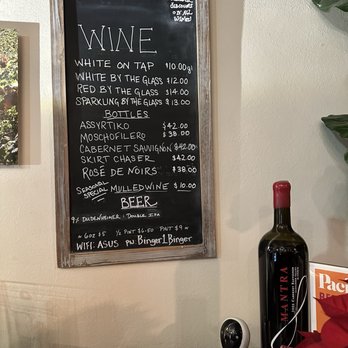 DISCOUNT
WINE
WHITE ON TAP $10.00 gl
WHITE BY THE GLASS $12.00
RED BY THE GLASS $14.00
SPARKLING BY THE GLASS $13.00
BOTTLES
ASSYRTIKO $42.00
MOSCHOFILERO $38.00
CABERNET SAUVIGNON $42.00
SKIRT CHASER $42.00
ROSÉ DE NOIRS $38.00
SEASONAL SPECIAL MULLED WINE $10.00
BEER
9% DUDENHEIMER : DOUBLE IPA
~ 6 OZ $5 ½ PINT $6.50 PINT $9 ~
WIFI: ASUS PW: Binger1Binger
MANTRA
Paci